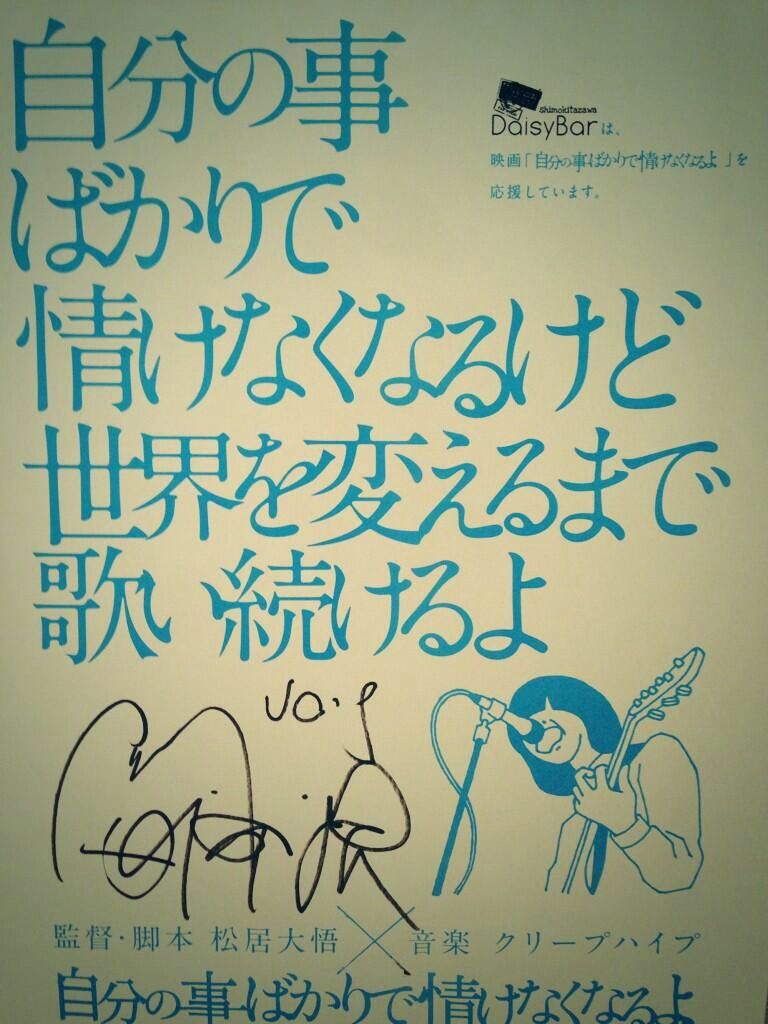 自分の事
ばかりで
情けなくなるけど
世界を変えるまで
歌い続けるよ
shimokitazawa
DaisyBarは、
映画「自分の事ばかりで情けなくなるよ」を
応援しています。
監督・脚本 松居大悟 × 音楽 クリープハイプ
自分の事ばかりで情けなくなるよ